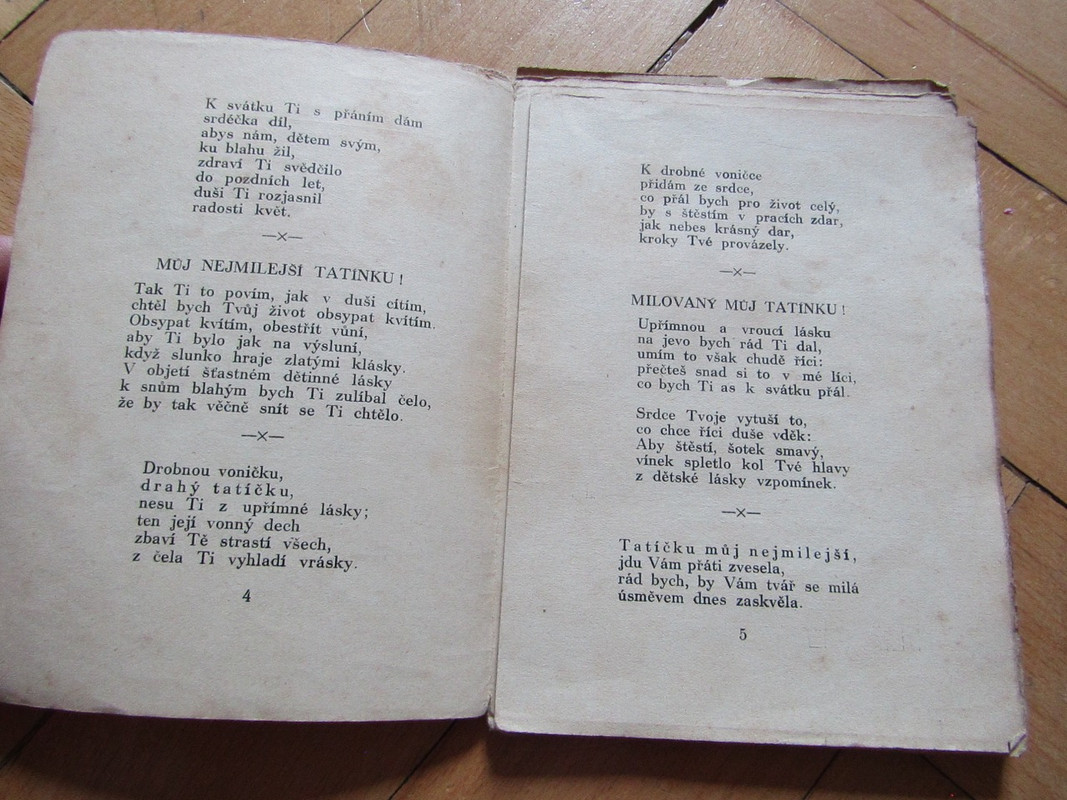 K svátku Ti s přáním dám
srdéčka díl,
abys nám, dětem svým,
ku blahu žil,
zdraví Ti svědčilo
do pozdních let,
duši Ti rozjasnil
radosti květ.
—×—
MŮJ NEJMILEJŠÍ TATÍNKU!
Tak Ti to povím, jak v duši cítím,
chtěl bych Tvůj život obsypat kvítím.
Obsypat kvítím, obestřít vůní,
aby Ti bylo jak na výsluní,
když slunko hraje zlatými klásky.
V objetí šťastném dětinné lásky
k snům blahým bych Ti zulíbal čelo,
že by tak věčně snít se Ti chtělo.
—×—
Drobnou voničku,
drahý tatíčku,
nesu Ti z upřímné lásky;
ten její vonný dech
zbaví Tě strastí všech,
z čela Ti vyhladí vrásky.
4
K drobné voničce
přidám ze srdce,
co přál bych pro život celý,
by s štěstím v pracích zdar,
jak nebes krásný dar,
kroky Tvé provázely.
—×—
MILOVANÝ MŮJ TATÍNKU!
Upřímnou a vroucí lásku
na jevo bych rád Ti dal,
umím to však chudě říci:
přečteš snad si to v mé líci,
co bych Ti as k svátku přál.
Srdce Tvoje vytuší to,
co chce říci duše vděk:
Aby štěstí, šotek smavý,
vínek spletlo kol Tvé hlavy
z dětské lásky vzpomínek.
—×—
Tatíčku můj nejmilejší,
jdu Vám přáti zvesela,
rád bych, by Vám tvář se milá
úsměvem dnes zaskvěla.
5